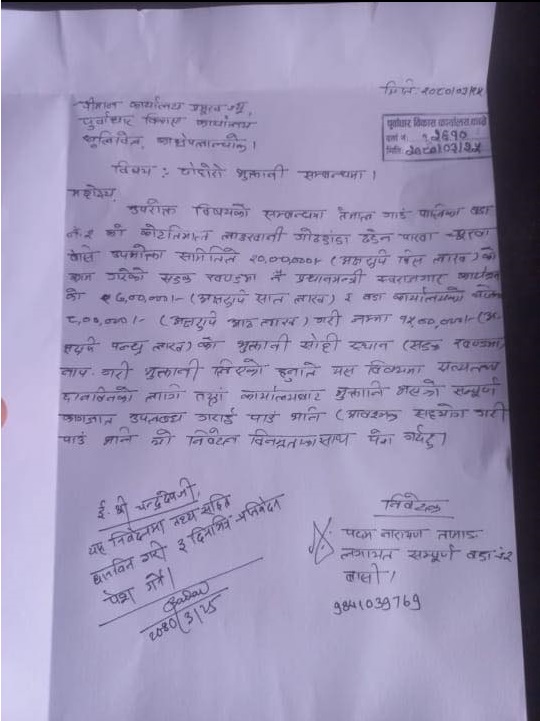 मिति २०८०/०३/२५
श्रीमान कार्यालय प्रमुख ज्यू,
पूर्वाधार विकास कार्यालय
धुलिखेल, काभ्रेपलान्चोक।
पूर्वाधार विकास कार्यालय, काभ्रे
दर्ता नं. २६१०
मिति: २०८०/०३/२५
विषय: दोहोरो भुक्तानी सम्बन्धमा।
महोदय,
उपरोक्त विषयको सम्बन्धमा तेमाल गाउँ पालिका वडा
नं. २ को ठेडेन पाखा
उपभोक्ता समितिले २०,००,०००।- (अक्षरुपि बिस लाख) को
काम गरेको सडक खण्डमा नै प्रधानमन्त्री स्वरोजगार कार्यक्रम
को ७,००,०००।- (अक्षरुपि सात लाख) र वडा कार्यालयको
८,००,०००।- (अक्षरुपि आठ लाख) गरी जम्मा १५,००,०००।- (अ
क्षरुपि पन्ध्र लाख) को भुक्तानी सोही स्थान (सडक खण्डमा)
गरी भुक्तानी लिएको हुनाले यस विषयमा सत्यतथ्य
छानविनको लागि तहाँ कार्यालयबाट भुक्तानी भएको सम्पूर्ण
कागजात उपलब्ध गराई पाउँ भनि (आवश्यक सहयोग गरी
पाउँ भनि यो निवेदन विनम्रताका साथ पेश गर्दछु।
ई. श्री चन्द्रदेवजी,
यस निवेदनमा तथ्य सहित
छानविन गरी ३ दिनभित्र प्रतिवेदन
पेश गर्ने।
2080/3/25
निवेदक
पदम नारायण तामाङ
लगायत सम्पूर्ण वडा नं. २
बासी।
9841039769